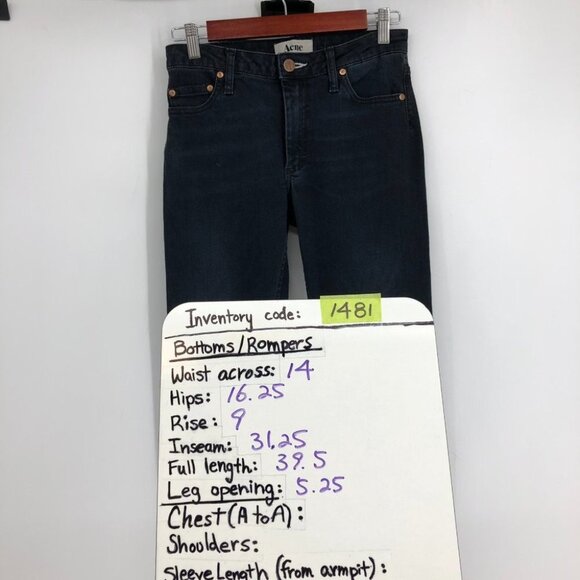 Acne
Inventory code: 1481
Bottoms/Rompers
Waist across: 14
Hips: 16.25
Rise: 9
Inseam: 31.25
Full length: 39.5
Leg opening: 5.25
Chest (A to A):
Shoulders:
Sleeve Length (from armpit):